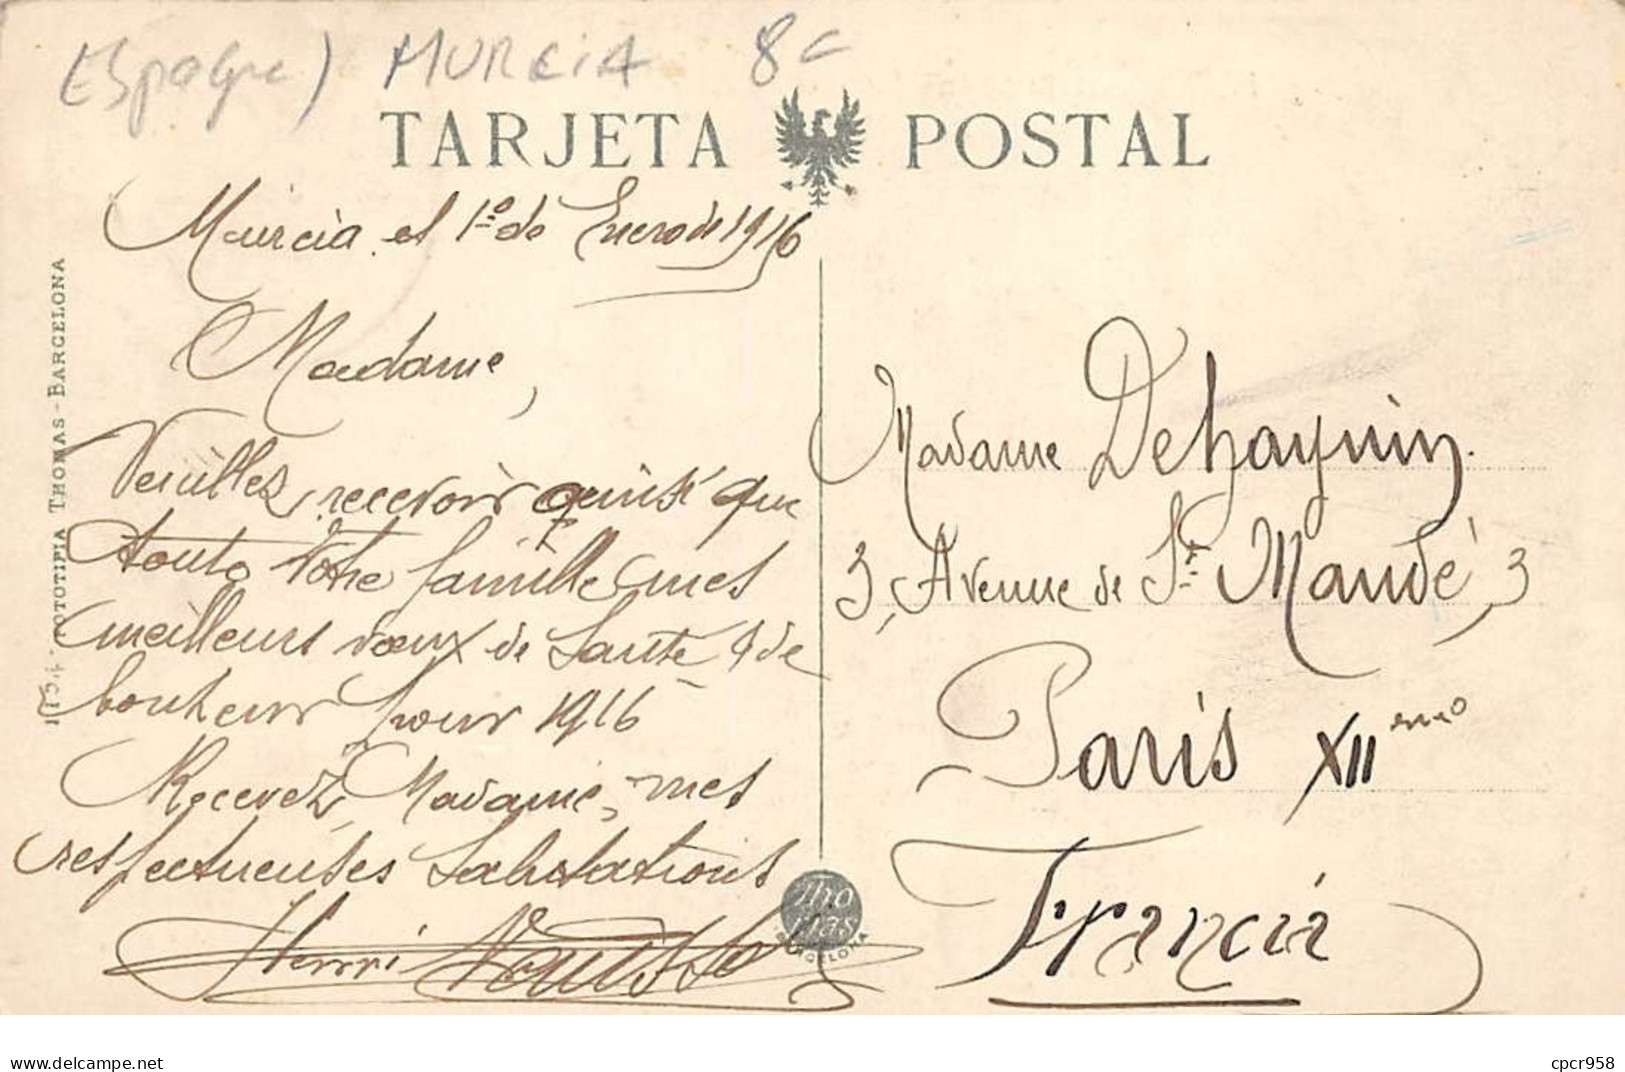 Espagne) MURCIA 8€
TARJETA POSTAL
Murcia el 1º de Enero de 1916
Madame,
Veuillez recevoir ainsi que
toute votre famille mes
meilleurs vœux de Santé & de
bonheur pour 1916
Recevez, Madame, mes
respectueuses Salutations
Henri
FOTOTIPIA THOMAS - BARCELONA
Madame Dehaynin.
3, Avenue de St Mandé, 3
Paris XIIeme
Francia
Thomas
BARCELONA
https://www.delcampe.net
cpcr958